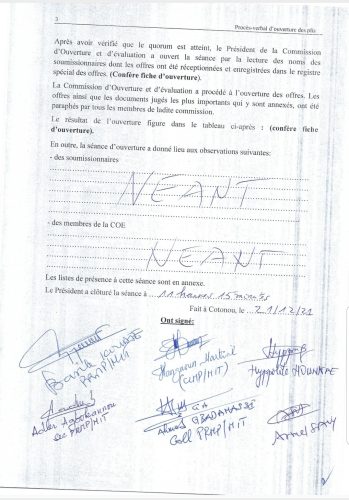 3
Procès-verbal d'ouverture des plis
Après avoir vérifié que le quorum est atteint, le Président de la Commission
d'Ouverture et d'évaluation a ouvert la séance par la lecture des noms des
soumissionnaires dont les offres ont été réceptionnées et enregistrées dans le registre
spécial des offres. (Confère fiche d'ouverture).
La Commission d'Ouverture et évaluation a procédé à l'ouverture des offres. Les
offres ainsi que les documents jugés les plus importants qui y sont annexés, ont été
paraphés par tous les membres de ladite commission.
Le résultat de l'ouverture figure dans le tableau ci-après : (confère fiche
d'ouverture).
En outre, la séance d'ouverture a donné lieu aux observations suivantes:
- des soumissionnaires
NEANT
- des membres de la COE
NEANT
Les listes de présence à cette séance sont en annexe.
Le Président a clôturé la séance à 11 heures 15 minutes
Fait à Cotonou, le 21/12/21
Ont signé:
PRMP/MIT
Martine
(CMP/MIT)
Hyppolite HOUNKPE
PRMP/MIT
Ahmed GBADAMASSI
Coll PRMP/MIT
Armel